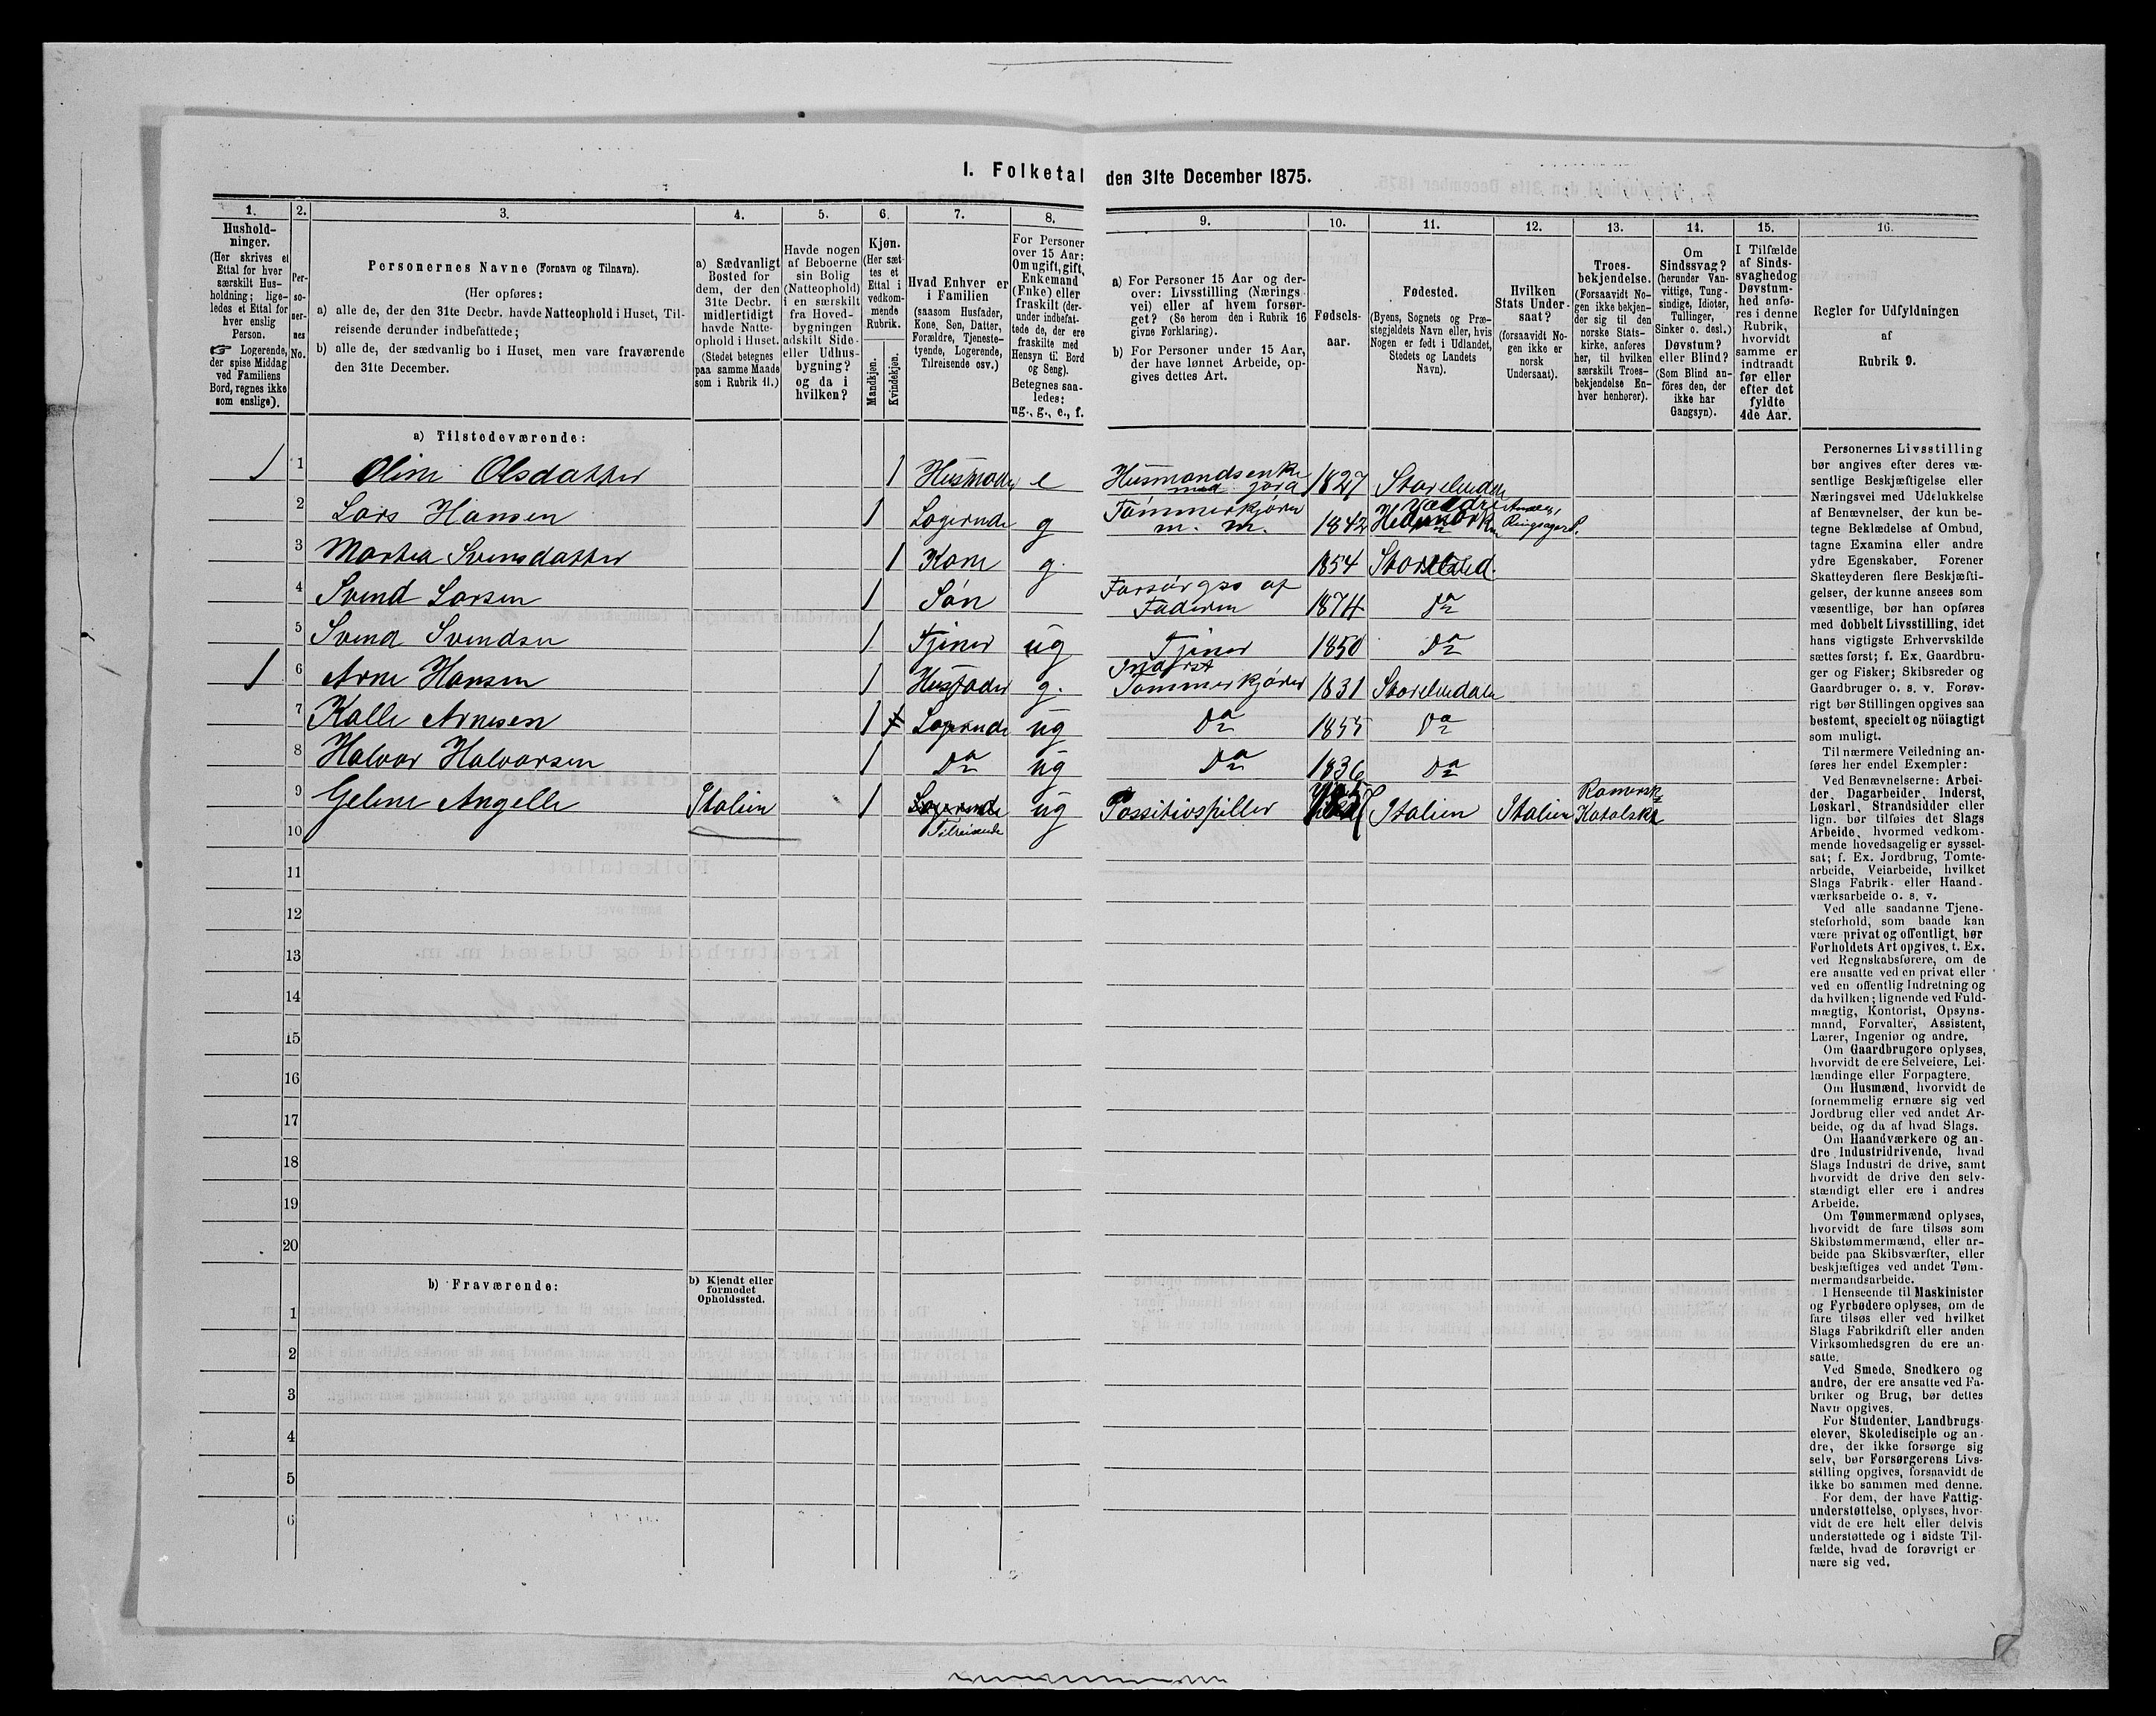 I. Folketal den 31te December 1875.
1. 2. 3. 4. 5. 6. 7. 8. 9. 10. 11. 12. 13. 14. 15. 16.
Hushold-
ninger.
(Her skrives et
Ettal for hver
særskilt Hus-
holdning; lige-
ledes et Ettal for
hver enslig
Person.
☞ Logerende,
der spise Middag
ved Familiens
Bord, regnes ikke
som enslige).
Per-
so-
ner-
nes
No.
Personernes Navne (Fornavn og Tilnavn).
(Her opføres:
a) alle de, der den 31te Decbr. havde Natteophold i Huset, Til-
reisende derunder indbefattede;
b) alle de, der sædvanlig bo i Huset, men vare fraværende
den 31te December.
a) Sædvanligt
Bosted for
dem, der den
31te Decbr.
midlertidigt
havde Natte-
ophold i Huset.
(Stedet betegnes
paa samme Maade
som i Rubrik 11.)
Havde nogen
af Beboerne
sin Bolig
(Natteophold)
i en særskilt
fra Hoved-
bygningen
adskilt Side-
eller Udhus-
bygning?
og da i
hvilken?
Kjøn.
(Her sæt-
tes et
Ettal i
vedkom-
mende
Rubrik.
Mandkjøn.
Kvindekjøn.
Hvad Enhver er
i Familien
(saasom Husfader,
Kone, Søn, Datter,
Forældre, Tjeneste-
tyende, Logerende,
Tilreisende osv.)
For Personer
over 15 Aar:
Om ugift, gift,
Enkemand
(Enke) eller
fraskilt (der-
under indbefat-
tede de, der ere
fraskilte med
Hensyn til Bord
og Seng).
Betegnes saa-
ledes:
ug., g., e., f.
a) For Personer 15 Aar og der-
over: Livsstilling (Nærings-
vei) eller af hvem forsør-
get? (Se herom den i Rubrik 16
givne Forklaring).
b) For Personer under 15 Aar,
der have lønnet Arbeide, op-
gives dettes Art.
Fødsels-
aar.
Fødested.
(Byens, Sognets og Præ-
stegjeldets Navn eller, hvis
Nogen er født i Udlandet,
Stedets og Landets
Navn).
Hvilken
Stats Under-
saat?
(forsaavidt No-
gen ikke er
norsk
Undersaat).
Troes-
bekjendelse.
(Forsaavidt No-
gen ikke bekjen-
der sig til den
norske Stats-
kirke, anføres
her, til hvilken
særskilt Troes-
bekjendelse En-
hver henhører).
Om
Sindssvag?
(herunder Van-
vittige, Tung-
sindige, Idioter,
Tullinger,
Sinker o. desl.)
Døvstum?
eller Blind?
(Som Blind an-
föres den, der
ikke har
Gangsyn).
I Tilfælde
af Sinds-
svaghed og
Døvstum-
hed anfø-
res i denne
Rubrik,
hvorvidt
samme er
indtraadt
før eller
efter det
fyldte
4de Aar.
Regler for Udfyldningen
af
Rubrik 9.
a) Tilstedeværende:
1 1 Oline Olsdatter 1 Husmoder e Husmandsenke med jord 1827 Storelvdalen
2 Lars Hansen 1 Logerende g Tømmerkjører m. m. 1842 Hedemarken Ringsager P.
3 Marthea Svensdatter 1 Kone g. 1854 Storelvd.
4 Svend Larsen 1 Søn Forsørges af Faderen 1874 do
5 Svend Svendsen 1 Tjener ug Tjener 1850 do
1 6 Arne Hansen 1 Husfader g. Inderst Tømmerkjører 1831 Storelvdalen
7 Kalle Arnesen 1 Logerende ug do 1855 do
8 Halvor Halvorsen 1 do ug do 1836 do
9 Gelene Angelle Italien 1 Logerende Tilreisende ug Possitivspiller Italien Italien Romersk Katolske
10
11
12
13
14
15
16
17
18
19
20
b) Fraværende:
b) Kjendt eller
formodet
Opholdssted.
1
2
3
4
5
6
Personernes Livsstilling
bør angives efter deres væ-
sentlige Beskjæftigelse eller
Næringsvei med Udelukkelse
af Benævnelser, der kun be-
tegne Beklædelse af Ombud,
tagne Examina eller andre
ydre Egenskaber. Forener
Skatteyderen flere Beskjæfti-
gelser, der kunne ansees som
væsentlige, bør han opføres
med dobbelt Livsstilling, idet
hans vigtigste Erhvervskilde
sættes først; f. Ex. Gaardbru-
ger og Fisker; Skibsreder og
Gaardbruger o. s. v. Forøv-
rigt bør Stillingen opgives saa
bestemt, specielt og nöiagtigt
som muligt.
Til nærmere Veiledning an-
føres her endel Exempler:
Ved Benævnelserne: Arbei-
der, Dagarbeider, Inderst,
Løskarl, Strandsidder eller
lign. bør tilføies det Slags
Arbeide, hvormed vedkom-
mende hovedsagelig er syssel-
sat; f. Ex. Jordbrug, Tomte-
arbeide, Veiarbeide, hvilket
Slags Fabrik- eller Haand-
værksarbeide o. s. v.
Ved alle saadanne Tjene-
steforhold, som baade kan
være privat og offentligt, bør
Forholdets Art opgives, t. Ex.
ved Regnskabsførere, om de
ere ansatte ved en privat eller
ved en offentlig Indretning og
da hvilken; lignende ved Fuld-
mægtig, Kontorist, Opsyns-
mand, Forvalter, Assistent,
Lærer, Ingeniør og andre.
Om Gaardbrugere oplyses,
hvorvidt de ere Selveiere, Lei-
lændinge eller Forpagtere.
Om Husmænd, hvorvidt de
fornemmelig ernære sig ved
Jordbrug eller ved andet Ar-
beide, og da af hvad Slags.
Om Haandværkere og an-
dre Industridrivende, hvad
Slags Industri de drive, samt
hvorvidt de drive den selv-
stændigt eller ere i andres
Arbeide.
Om Tømmermænd oplyses,
hvorvidt de fare tilsøs som
Skibstømmermænd, eller ar-
beide paa Skibsværfter, eller
beskjæftiges ved andet Tøm-
mermandsarbeide.
I Henseende til Maskinister
og Fyrbødere oplyses, om de
fare tilsøs eller ved hvilket
Slags Fabrikdrift eller anden
Virksomhedsgren de ere an-
satte.
Ved Smede, Snedkere og
andre, der ere ansatte ved Fa-
briker og Brug, bør dettes
Navn opgives.
For Studenter, Landbrugs-
elever, Skoledisciple og an-
dre, der ikke forsørge sig
selv, bør Forsørgerens Livs-
stilling opgives, forsaavidt de
ikke bo sammen med denne.
For dem, der have Fattig-
understøttelse, oplyses, hvor-
vidt de ere helt eller delvis
understøttede og i sidste Til-
fælde, hvad de forøvrigt er-
nære sig ved.